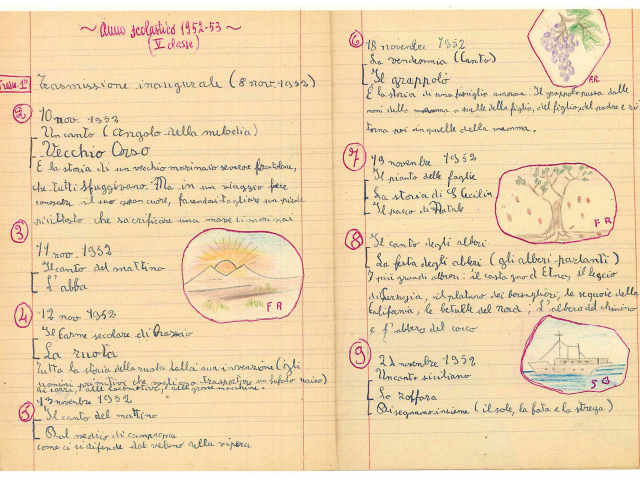 ~ Anno scolastico 1952-53 ~
(V classe)
Trasm. 1ª Trasmissione inaugurale (8 nov. 1952)
2 10 nov. 1952
Un canto (angolo della melodia)
Vecchio Orso
È la storia di un vecchio marinaio severo e
che tutti sfuggivano. Ma in un viaggio fece
conoscere il suo gran cuore, facendosi tagliare un piede
piuttosto che sacrificare una nave di marinai
3
11 nov. 1952
Il canto del mattino
L'alba
FR
4 12 nov 1952
Il Carme secolare di Orazio
La ruota
Tutta la storia della ruota dalla sua invenzione (gli
uomini primitivi che vogliono trasportare un bufalo ucciso)
ai carri, alle locomotive, alle grosse macchine.
5 13 novembre 1952
Il canto del mattino
Dal medico di campagna
come ci si difende dal veleno della vipera
6 18 novembre 1952
La vendemmia (canto)
Il grappolo
FR
È la storia di una famiglia amorosa. Il grappolo passa dalle
mani della mamma a quelle della figlia, del figlio, del padre e ri
torna poi in quelle della mamma.
7 19 novembre 1952
Il pianto delle foglie
La storia di S Cecilia
Il parco di Natale
FR
8 Il canto degli alberi
La festa degli alberi (gli alberi parlanti)
I più grandi alberi: il castagno di Etna, il leccio
di Perugia, il platano dei bersaglieri, le sequoie della
California, le betulle del Nord; L'albero del chinino
e l'albero del cocco
9
24 novembre 1952
Un canto siciliano
La zolfara
Disegniamo insieme (il sole, la fata e la strega)